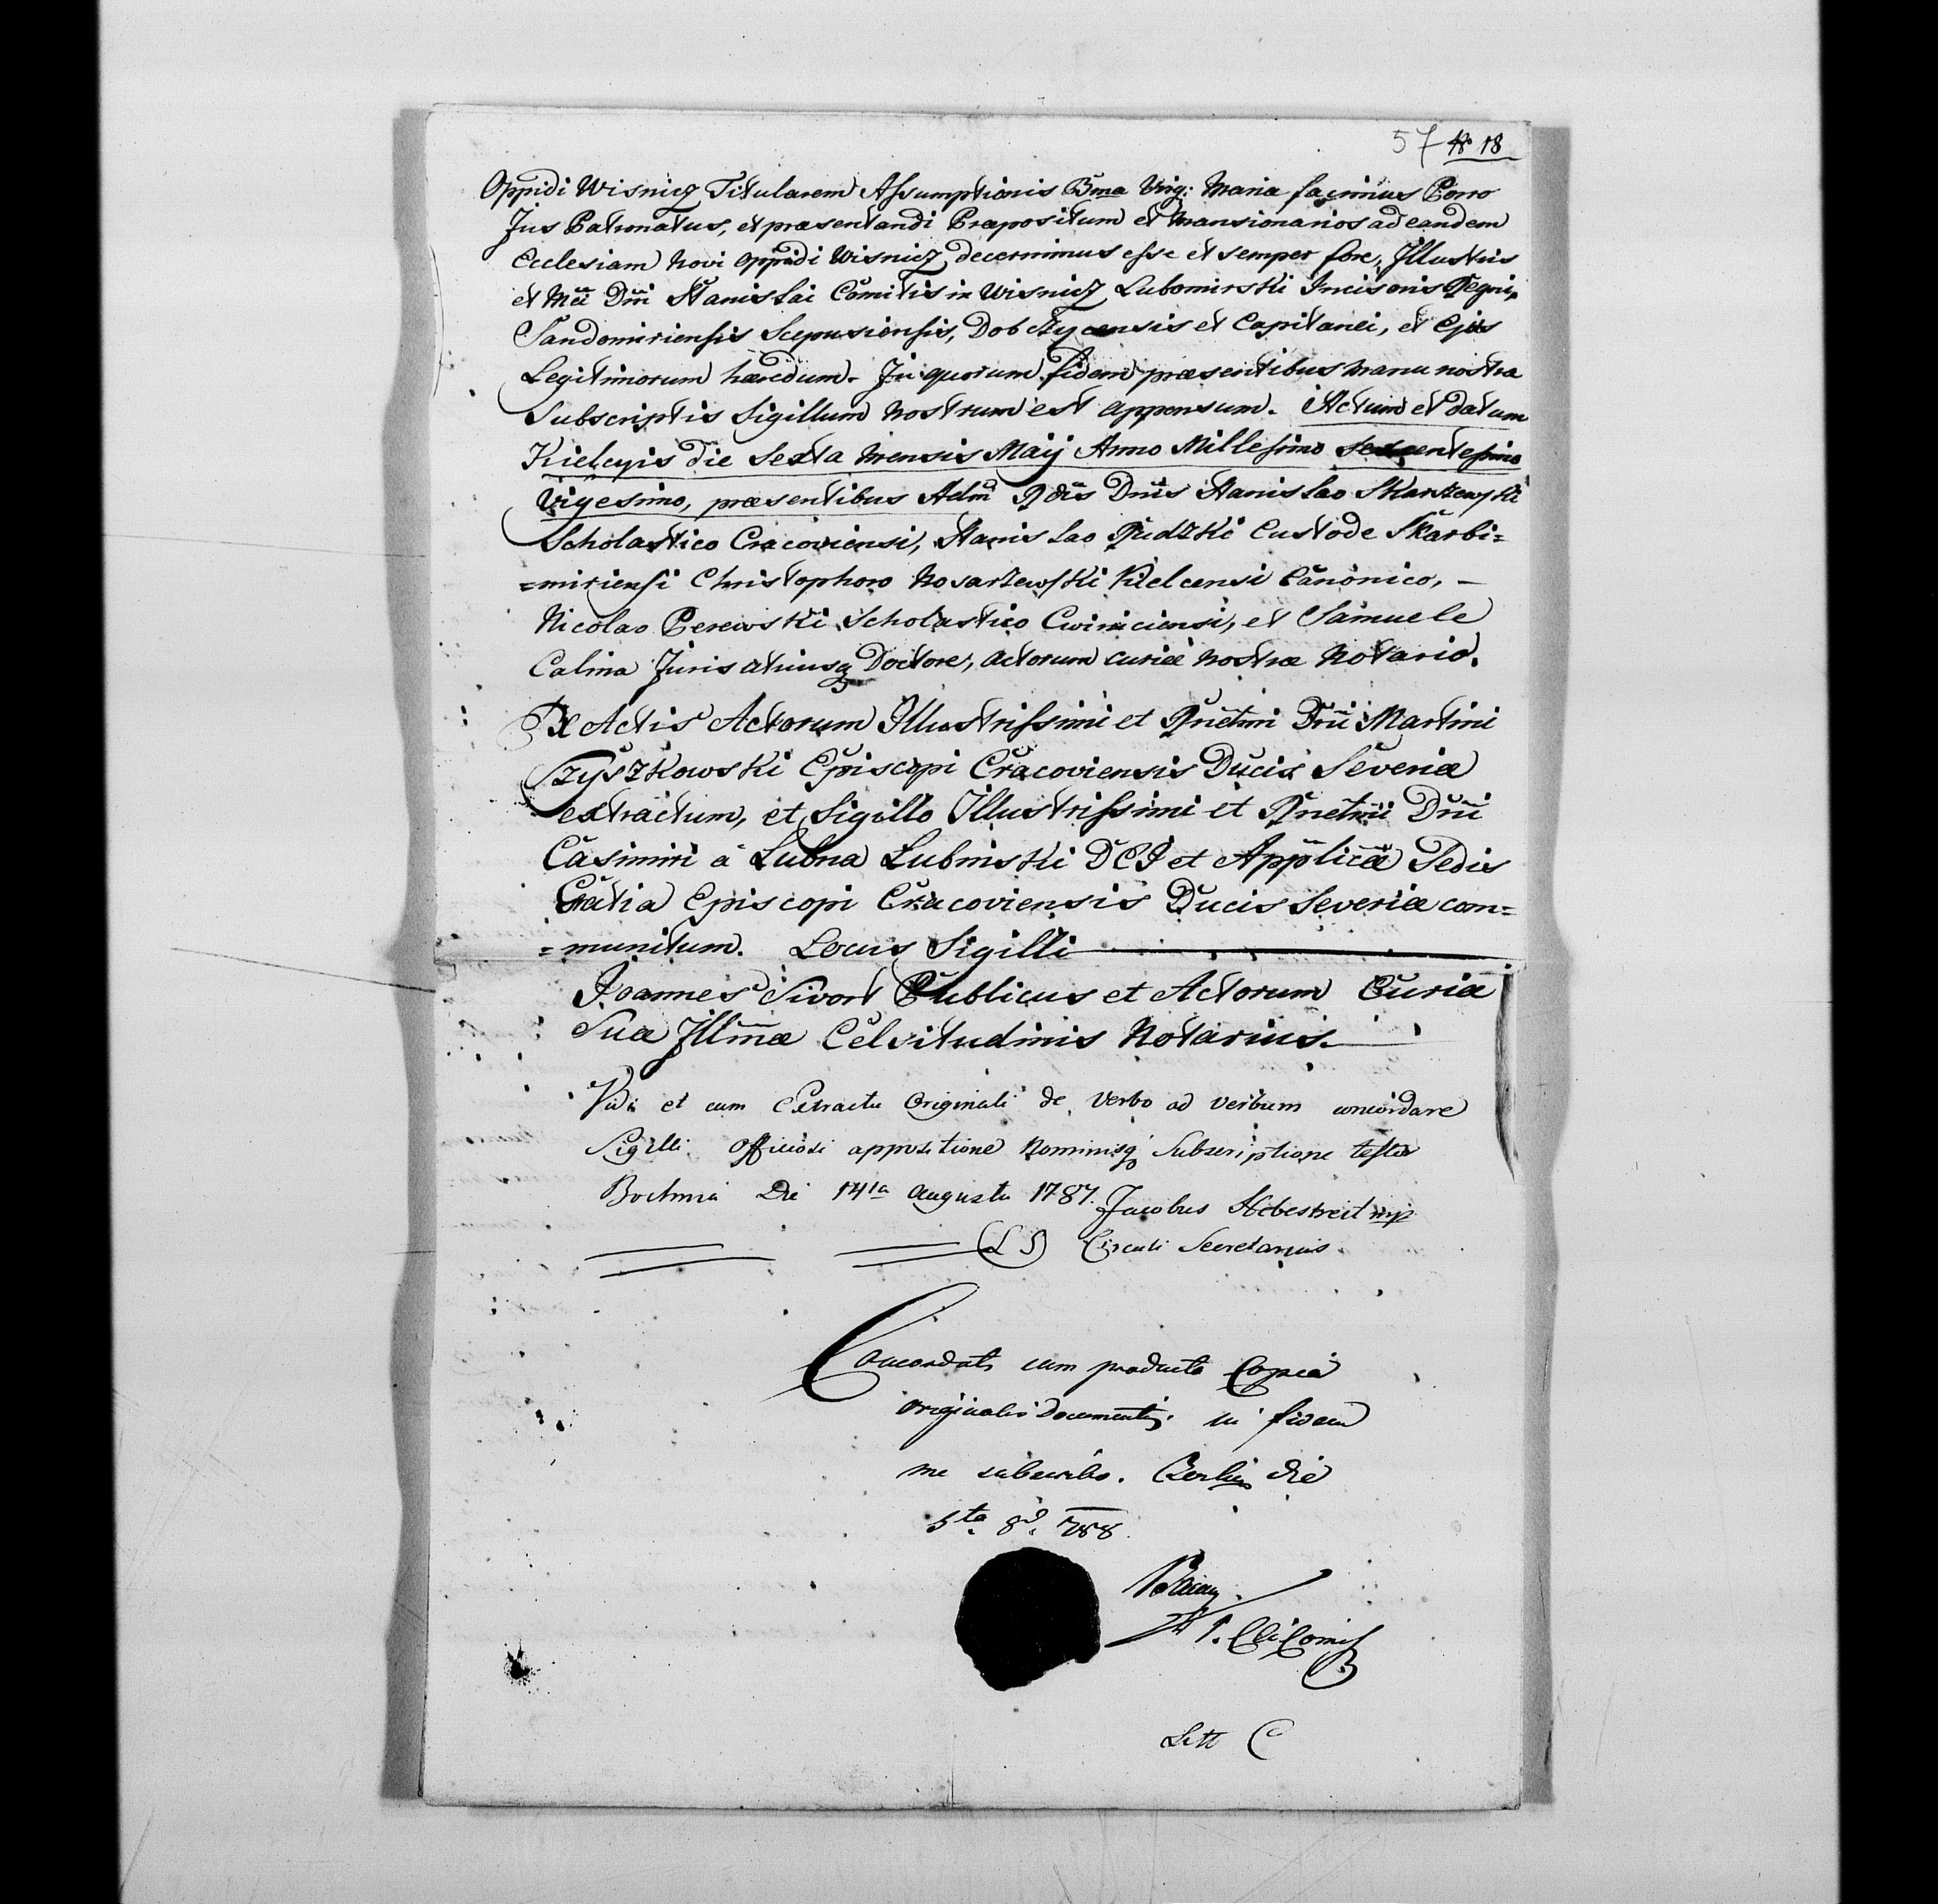 57 No 18
Oppidi Wisnicz Titularem Assumptionis Bma Virg: Maria facimus Porro
Jus Patronatus, et praesentandi Praepositum et Mansionarios ad eandem
Ecclesiam Novi oppidi Wisnicz decernimus esse et semper fore, Jllustris
et Mci Dni Stanislai Comitis in Wisnicz Lubomirski Incisoris Regni,
Sandomiriensis Scepusiensis, Dobczycensis et Capitanei, et Ejus
Legitimorum haeredum. Jn quorum fidem praesentibus manu nostra
Subscriptis Sigillum nostrum est appensum. Actum et datum
Kielcyis die Sexta Mensis Maij Anno Millesimo sexcentesimo
Vigesimo, praesentibus Adm Rdis Dnis Stanislao Skarszewski
Scholastico Cracoviensi, Stanislao Rudzki Custode Skarbi=
=miriensi Christophoro Nosarzewski Kielcensi Canonico, —
Nicolao Perewski Scholastico Cwiniciensi, et Samuele
Calina Juris utriusq Doctore, actorum curiae nostrae Notario.
Ex Actis Actorum Jllustrissimi et Rnetmi Dni Martini
Szyszkowski Episcopi Cracoviensis Ducis Severiae
extractum, et Sigillo Jllustrissimi et Rnetmi Dni
Casimiri a Lubna Lubinski DEJ et Applicae Sedis
Gratia Episcopi Cracoviensis Ducis Severiae com=
=munitum. Locus Sigilli
Joannes Sivort Publicus et Actorum Curiae
Suae Jllmae Celsitudinis Notarius.
Vidi et cum Extractu Originali de verbo ad verbum concordare
Sigilli officiosi appositione Nominisq Subscriptione testor
Bochnia Die 14ta Augusti 1787. Jacobus Hebestreit mp
(L S) Circuli Secretarius
Concordat cum producta Copia
originalis Documenti in fidem
me subscribo. die
5ta 8b 788
Litt C